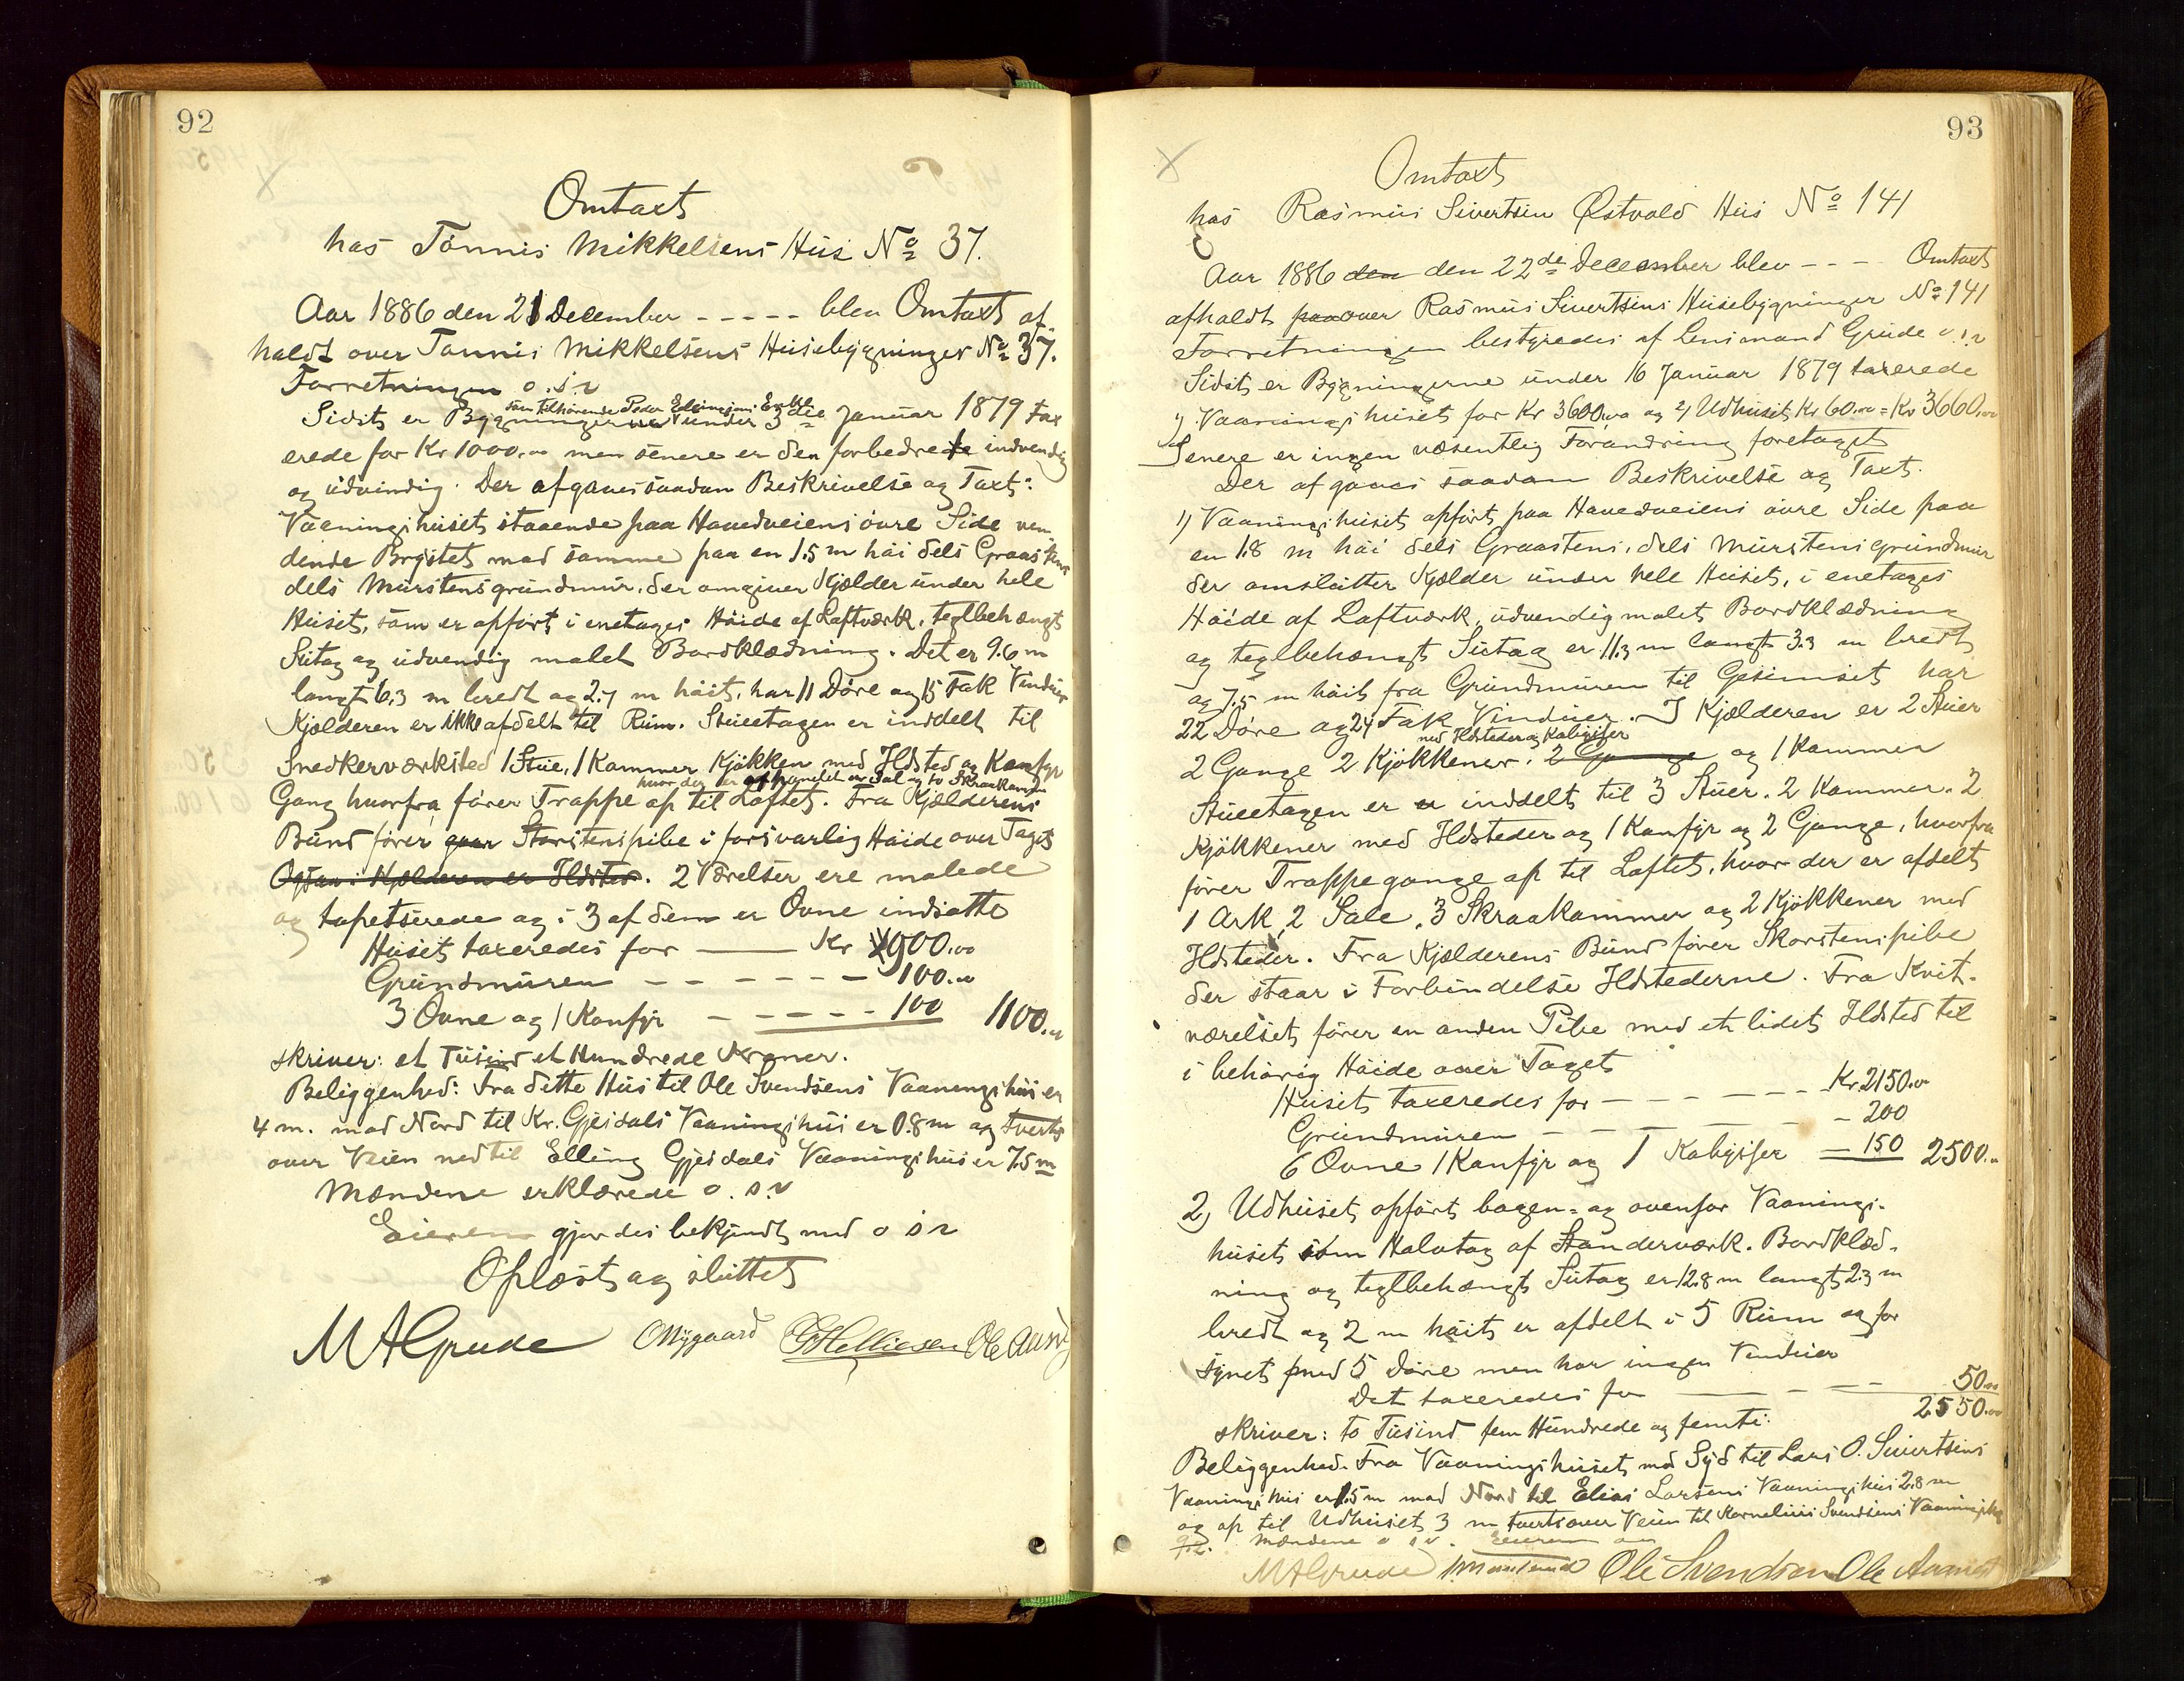 92
Omtaxt
hos Tønnis Mikkelsens Hus No 37.
Aar 1886 den 21 December - - - - - blev Omtaxt af
holdt over Tønnis Mikkelsens Husebygninger No 37.
Forretningen o.s.v
som tilhørende Peder Enke
Sidst er Bygningerne under 3die Januar 1879 tax
erede for Kr 1000.00 men senere er den forbedrede indvendig
og udvendig. Der afgaves saadan Beskrivelse og Taxt:
Vaaningshuset staaende paa Hovedveiens øvre Side ven
dende Brystet mod samme paa en 1.5 m høi dels Graastens
dels Murstensgrundmur, der omgiver Kjælder under hele
Huset, som er opført i enetages Høide af Laftværk, teglbehængt
Sutag og udvendig malet Bordklædning. Det er 9.6 m
langt 6.3 m bredt og 2.7 m høit, har 11 Døre og 15 Fak Vinduer
Kjælderen er ikke afdelt til Rum. Stueetagen er inddelt til
Snedkerværksted 1 Stue, 1 Kammer Kjøkken med Ildsted og Komfyr
hvor der er en Sal og to Skraakammer
Gang hvorfra fører Trappe op til Loftet. Fra Kjælderens
Bund fører Skorstenspibe i forsvarlig Høide over Taget
Ogsaa i Kjælderen er Ildsted. 2 Værelser ere malede
og tapetserede og i 3 af dem er Ovne indsatte
Huset taxeredes for ——— Kr 900.00
Grundmuren - - - - - - - 100.00
3 Ovne og 1 Komfyr - - - - - - 100 1100.00
skriver: et Tusind et Hundrede Kroner.
Beliggenhed: Fra dette Hus til Ole Svendsens Vaaningshus er
4 m. mod Nord til Kr. Gjesdals Vaaningshus er 0.8 m og tverts
over Veien ned til Elling Gjesdals Vaaningshus er 7.5 m
Mændene erklærede o.s.v
Eieren gjordes bekjendt med o s v
Oplæst og sluttet
M A Grude O Nygaard Helliesen Ole
93
Omtaxt
hos Rasmus Sivertsen Østvold Hus No 141
Aar 1886 den den 22de December blev - - - Omtaxt
afholdt paa over Rasmus Sivertsens Husebygninger No 141
Forretningen bestyredes af Lensmand Grude o.s.v
Sidst er Bygningerne under 16 Januar 1879 taxerede
1) Vaaningshuset for Kr 3600,00 og 2) Udhuset Kr 60.00 = Kr 3660.00
Senere er ingen væsentlig Forandring foretaget
Der afgaves saadan Beskrivelse og Taxt.
1) Vaaningshuset opført paa Hovedveiens øvre Side paa
en 1.8 m høi dels Graastens, dels Murstensgrundmur
der omslutter Kjælder under hele Huset, i enetages
Høide af Laftværk, udvendig malet Bordklædning
og teglbehængt Sutag er 11.3 m langt 3.3 m bredt
og 7.5 m høit fra Grundmuren til Gesimset har
22 Døre og 24 Fak Vinduer. I Kjælderen er 2 Stuer
med Ildsteder og Kabysser
2 Gange 2 Kjøkkener. 2 Gange og 1 Kammer
Stueetagen er inddelt til 3 Stuer. 2 Kammer. 2
Kjøkkener med Ildsteder og 1 Komfyr og 2 Gange, hvorfra
fører Trappegange op til Loftet, hvor der er afdelt
1 Ark, 2 Sale, 3 Skraakammer og 2 Kjøkkener med
Ildsteder. Fra Kjælderens Bund fører Skorstenspibe
der staar i Forbindelse Ildstederne. Fra Kvit-
værelset fører en anden Pibe med et lidet Ildsted til
i behørig Høide over Taget
Huset taxeredes for - - - - - - Kr 2150.00
Grundmuren - - - - - - - 200
6 Ovne 1 Komfyr og 1 Kabysser — 150 2500.00
2) Udhuset, opført bagen- og ovenfor Vaanings-
huset som Halvtag af Standerværk. Bordklæd-
ning og teglbehængt Sutag er 12.8 m langt 2.3 m
bredt og 2 m høit er afdelt i 5 Rum og for
synet med 5 Døre men har ingen Vinduer
Det taxeredes for ——— - - - 50.00
2550.00
skriver: to Tusind fem Hundrede og femti:
Beliggenhed. Fra Vaaningshuset mod Syd til Lars O. Sivertsens
Vaaningshus er 1.5 m mod Nord til Elias Larsens Vaaningshus 2.8 m
og op til Udhuset 3 m tvertsover Veien til Kornelius Svendsens Vaaningshus
9.2. Mændene o s v. Eieren
M A Grude Ole Svendsen Ole